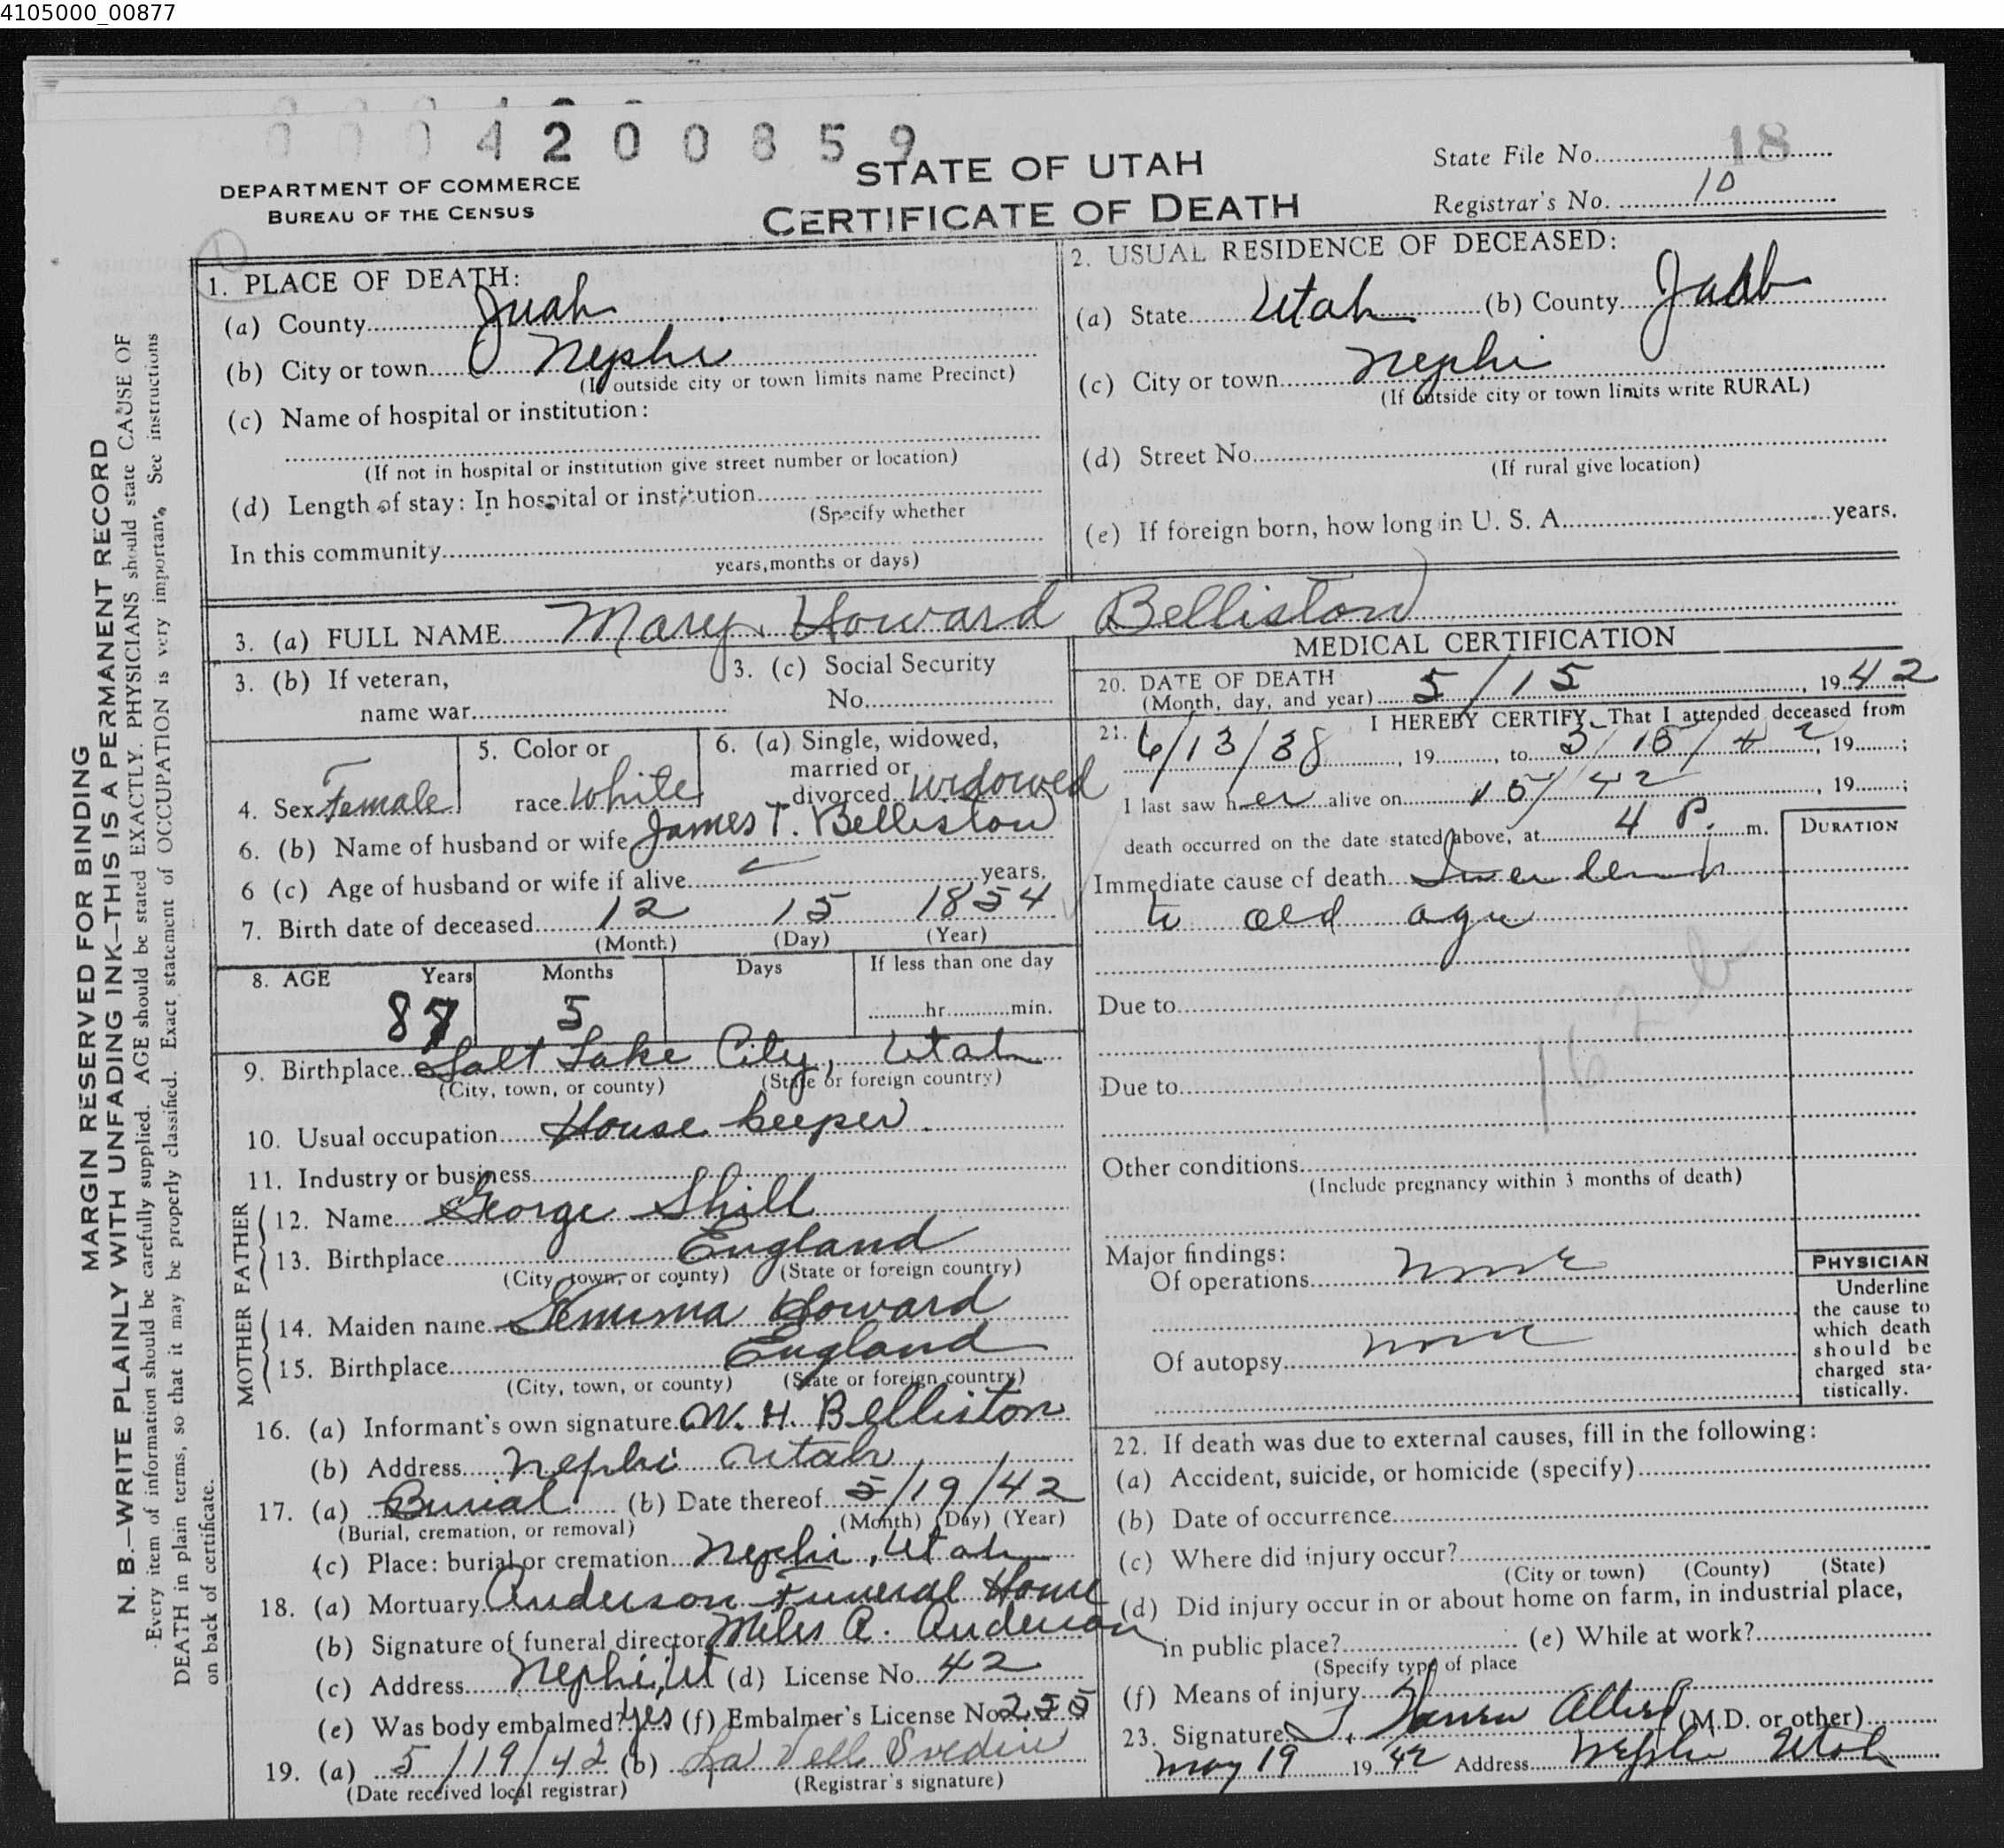 4105000_00877
0004200859
STATE OF UTAH
CERTIFICATE OF DEATH
DEPARTMENT OF COMMERCE
BUREAU OF THE CENSUS
State File No. 18
Registrar's No. 10
1. PLACE OF DEATH:
(a) County Juab
(b) City or town Nephi
(If outside city or town limits name Precinct)
(c) Name of hospital or institution:
(If not in hospital or institution give street number or location)
(d) Length of stay: In hospital or institution
(Specify whether
In this community
years, months or days)
2. USUAL RESIDENCE OF DECEASED:
(a) State Utah (b) County Juab
(c) City or town Nephi
(If outside city or town limits write RURAL)
(d) Street No.
(If rural give location)
(e) If foreign born, how long in U. S. A. years.
3. (a) FULL NAME Mary Howard Belliston
3. (b) If veteran,
name war
3. (c) Social Security
No.
4. Sex Female
5. Color or
race White
6. (a) Single, widowed,
married or
divorced widowed
6. (b) Name of husband or wife James T. Belliston
6 (c) Age of husband or wife if alive years.
7. Birth date of deceased 12 15 1854
(Month) (Day) (Year)
8. AGE Years Months Days If less than one day
87 5 hr. min.
9. Birthplace Salt Lake City, Utah
(City, town, or county) (State or foreign country)
10. Usual occupation House keeper.
11. Industry or business
FATHER
12. Name George Shill
13. Birthplace England
(City, town, or county) (State or foreign country)
MOTHER
14. Maiden name Jemima Howard
15. Birthplace England
(City, town, or county) (State or foreign country)
16. (a) Informant's own signature W. H. Belliston
(b) Address Nephi Utah
17. (a) Burial (b) Date thereof 5/19/42
(Burial, cremation, or removal) (Month) (Day) (Year)
(c) Place: burial or cremation Nephi, Utah
18. (a) Mortuary Anderson Funeral Home
(b) Signature of funeral director Miles A. Anderson
(c) Address Nephi, Ut (d) License No. 42
(e) Was body embalmed? Yes (f) Embalmer's License No. 255
19. (a) 5/19/42 (b) La Vell Svedin
(Date received local registrar) (Registrar's signature)
MEDICAL CERTIFICATION
20. DATE OF DEATH
(Month, day, and year) 5/15, 1942
21. I HEREBY CERTIFY, That I attended deceased from
6/13/38, 19 , to 5/15/42, 19 ;
I last saw her alive on 15/42, 19 ;
death occurred on the date stated above, at 4 P. m.
DURATION
Immediate cause of death
to old age
Due to
Due to
Other conditions
(Include pregnancy within 3 months of death)
Major findings:
Of operations none
Of autopsy none
PHYSICIAN
Underline
the cause to
which death
should be
charged sta-
tistically.
22. If death was due to external causes, fill in the following:
(a) Accident, suicide, or homicide (specify)
(b) Date of occurrence
(c) Where did injury occur?
(City or town) (County) (State)
(d) Did injury occur in or about home on farm, in industrial place,
in public place? (e) While at work?
(Specify type of place
(f) Means of injury
23. Signature (M.D. or other)
May 19 19 42 Address Nephi Utah
MARGIN RESERVED FOR BINDING
N. B.—WRITE PLAINLY WITH UNFADING INK—THIS IS A PERMANENT RECORD
Every item of information should be carefully supplied. AGE should be stated EXACTLY. PHYSICIANS should state CAUSE OF
DEATH in plain terms, so that it may be properly classified. Exact statement of OCCUPATION is very important. See instructions
on back of certificate.